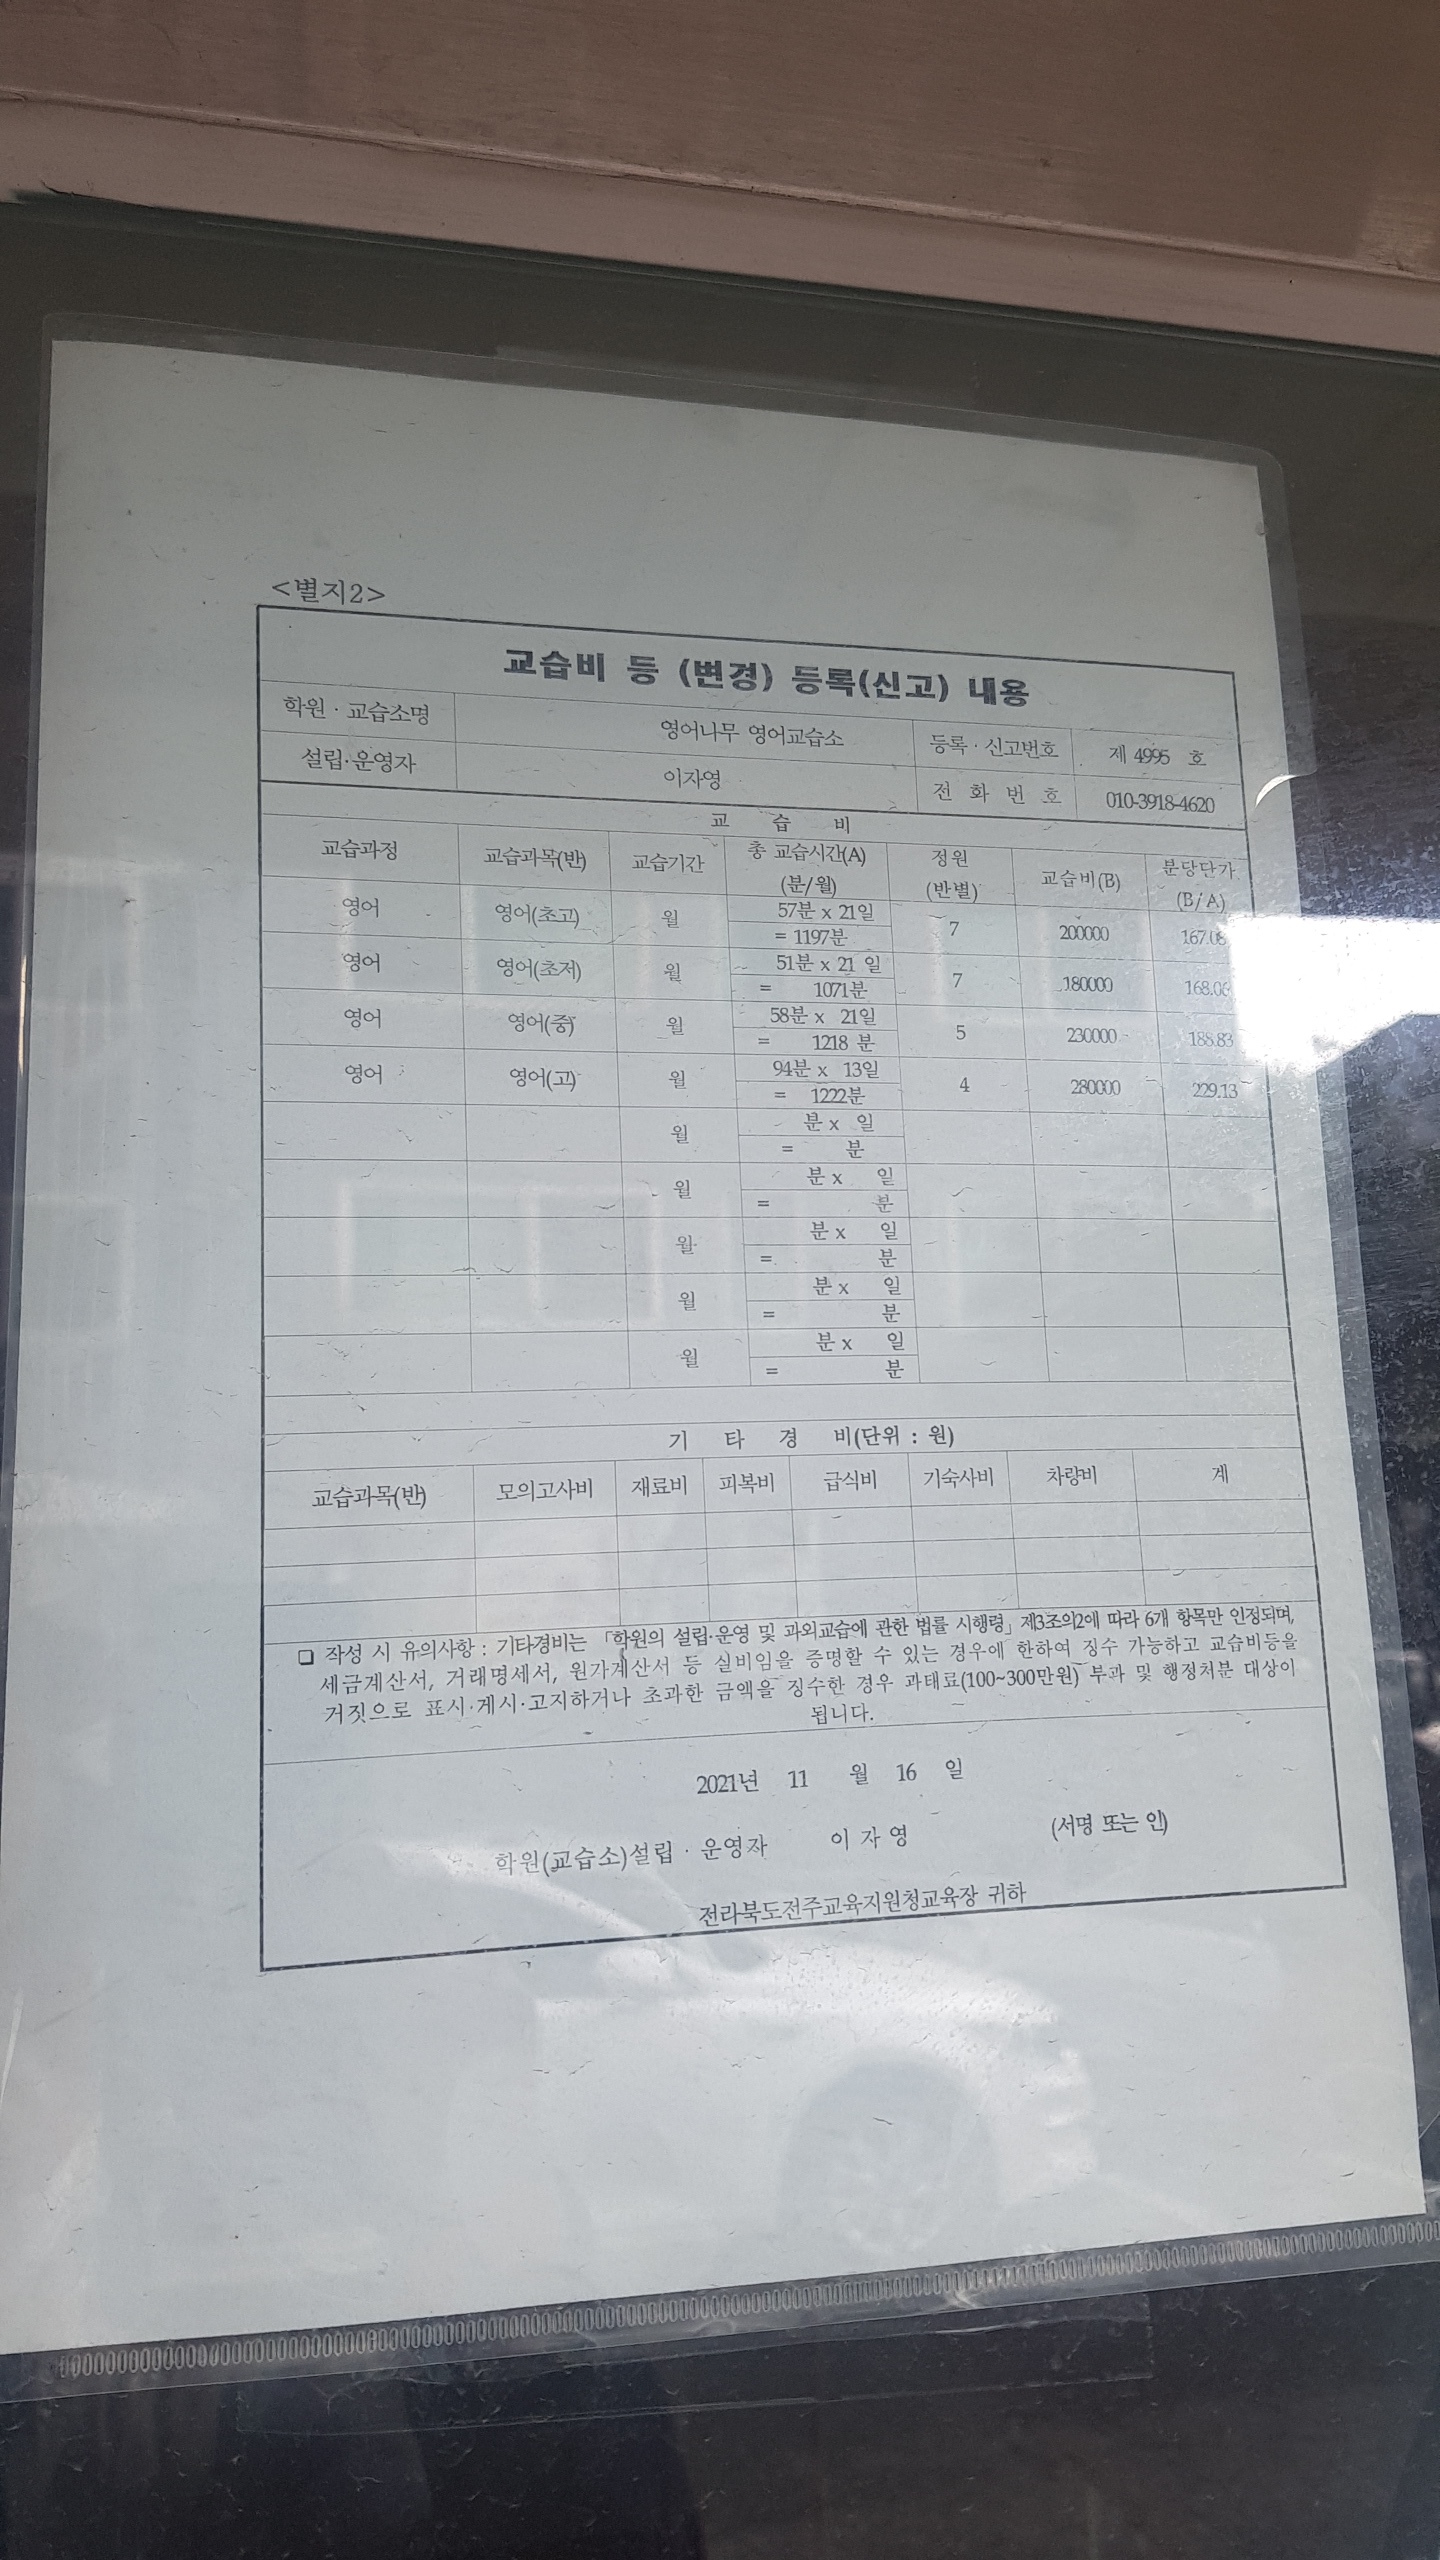 <별지2>
교습비 등 (변경) 등록(신고) 내용
학원 · 교습소명 영어나무 영어교습소 등록 · 신고번호 제 4995 호
설립·운영자 이자영 전 화 번 호 010-3918-4620
교 습 비
교습과정 교습과목(반) 교습기간 총 교습시간(A) (분/월) 정원 (반별) 교습비(B) 분당단가 (B/A)
영어 영어(초고) 월 57분 x 21일 7 200000
= 1197분
영어 영어(초저) 월 51분 x 21 일 7 180000
= 1071분
영어 영어(중) 월 58분 x 21일 5 230000 188.83
= 1218 분
영어 영어(고) 월 94분 x 13일 4 280000 229.13
= 1222분
월 분 x 일
= 분
월 분 x 일
= 분
월 분 x 일
= 분
월 분 x 일
= 분
월 분 x 일
= 분
기 타 경 비(단위 : 원)
교습과목(반) 모의고사비 재료비 피복비 급식비 기숙사비 차량비 계
❏ 작성 시 유의사항 : 기타경비는 「학원의 설립·운영 및 과외교습에 관한 법률 시행령」 제3조의2에 따라 6개 항목만 인정되며,
세금계산서, 거래명세서, 원가계산서 등 실비임을 증명할 수 있는 경우에 한하여 징수 가능하고 교습비등을
거짓으로 표시·게시·고지하거나 초과한 금액을 징수한 경우 과태료(100~300만원) 부과 및 행정처분 대상이
됩니다.
2021년 11 월 16 일
학원(교습소)설립 · 운영자 이 자 영 (서명 또는 인)
전라북도전주교육지원청교육장 귀하